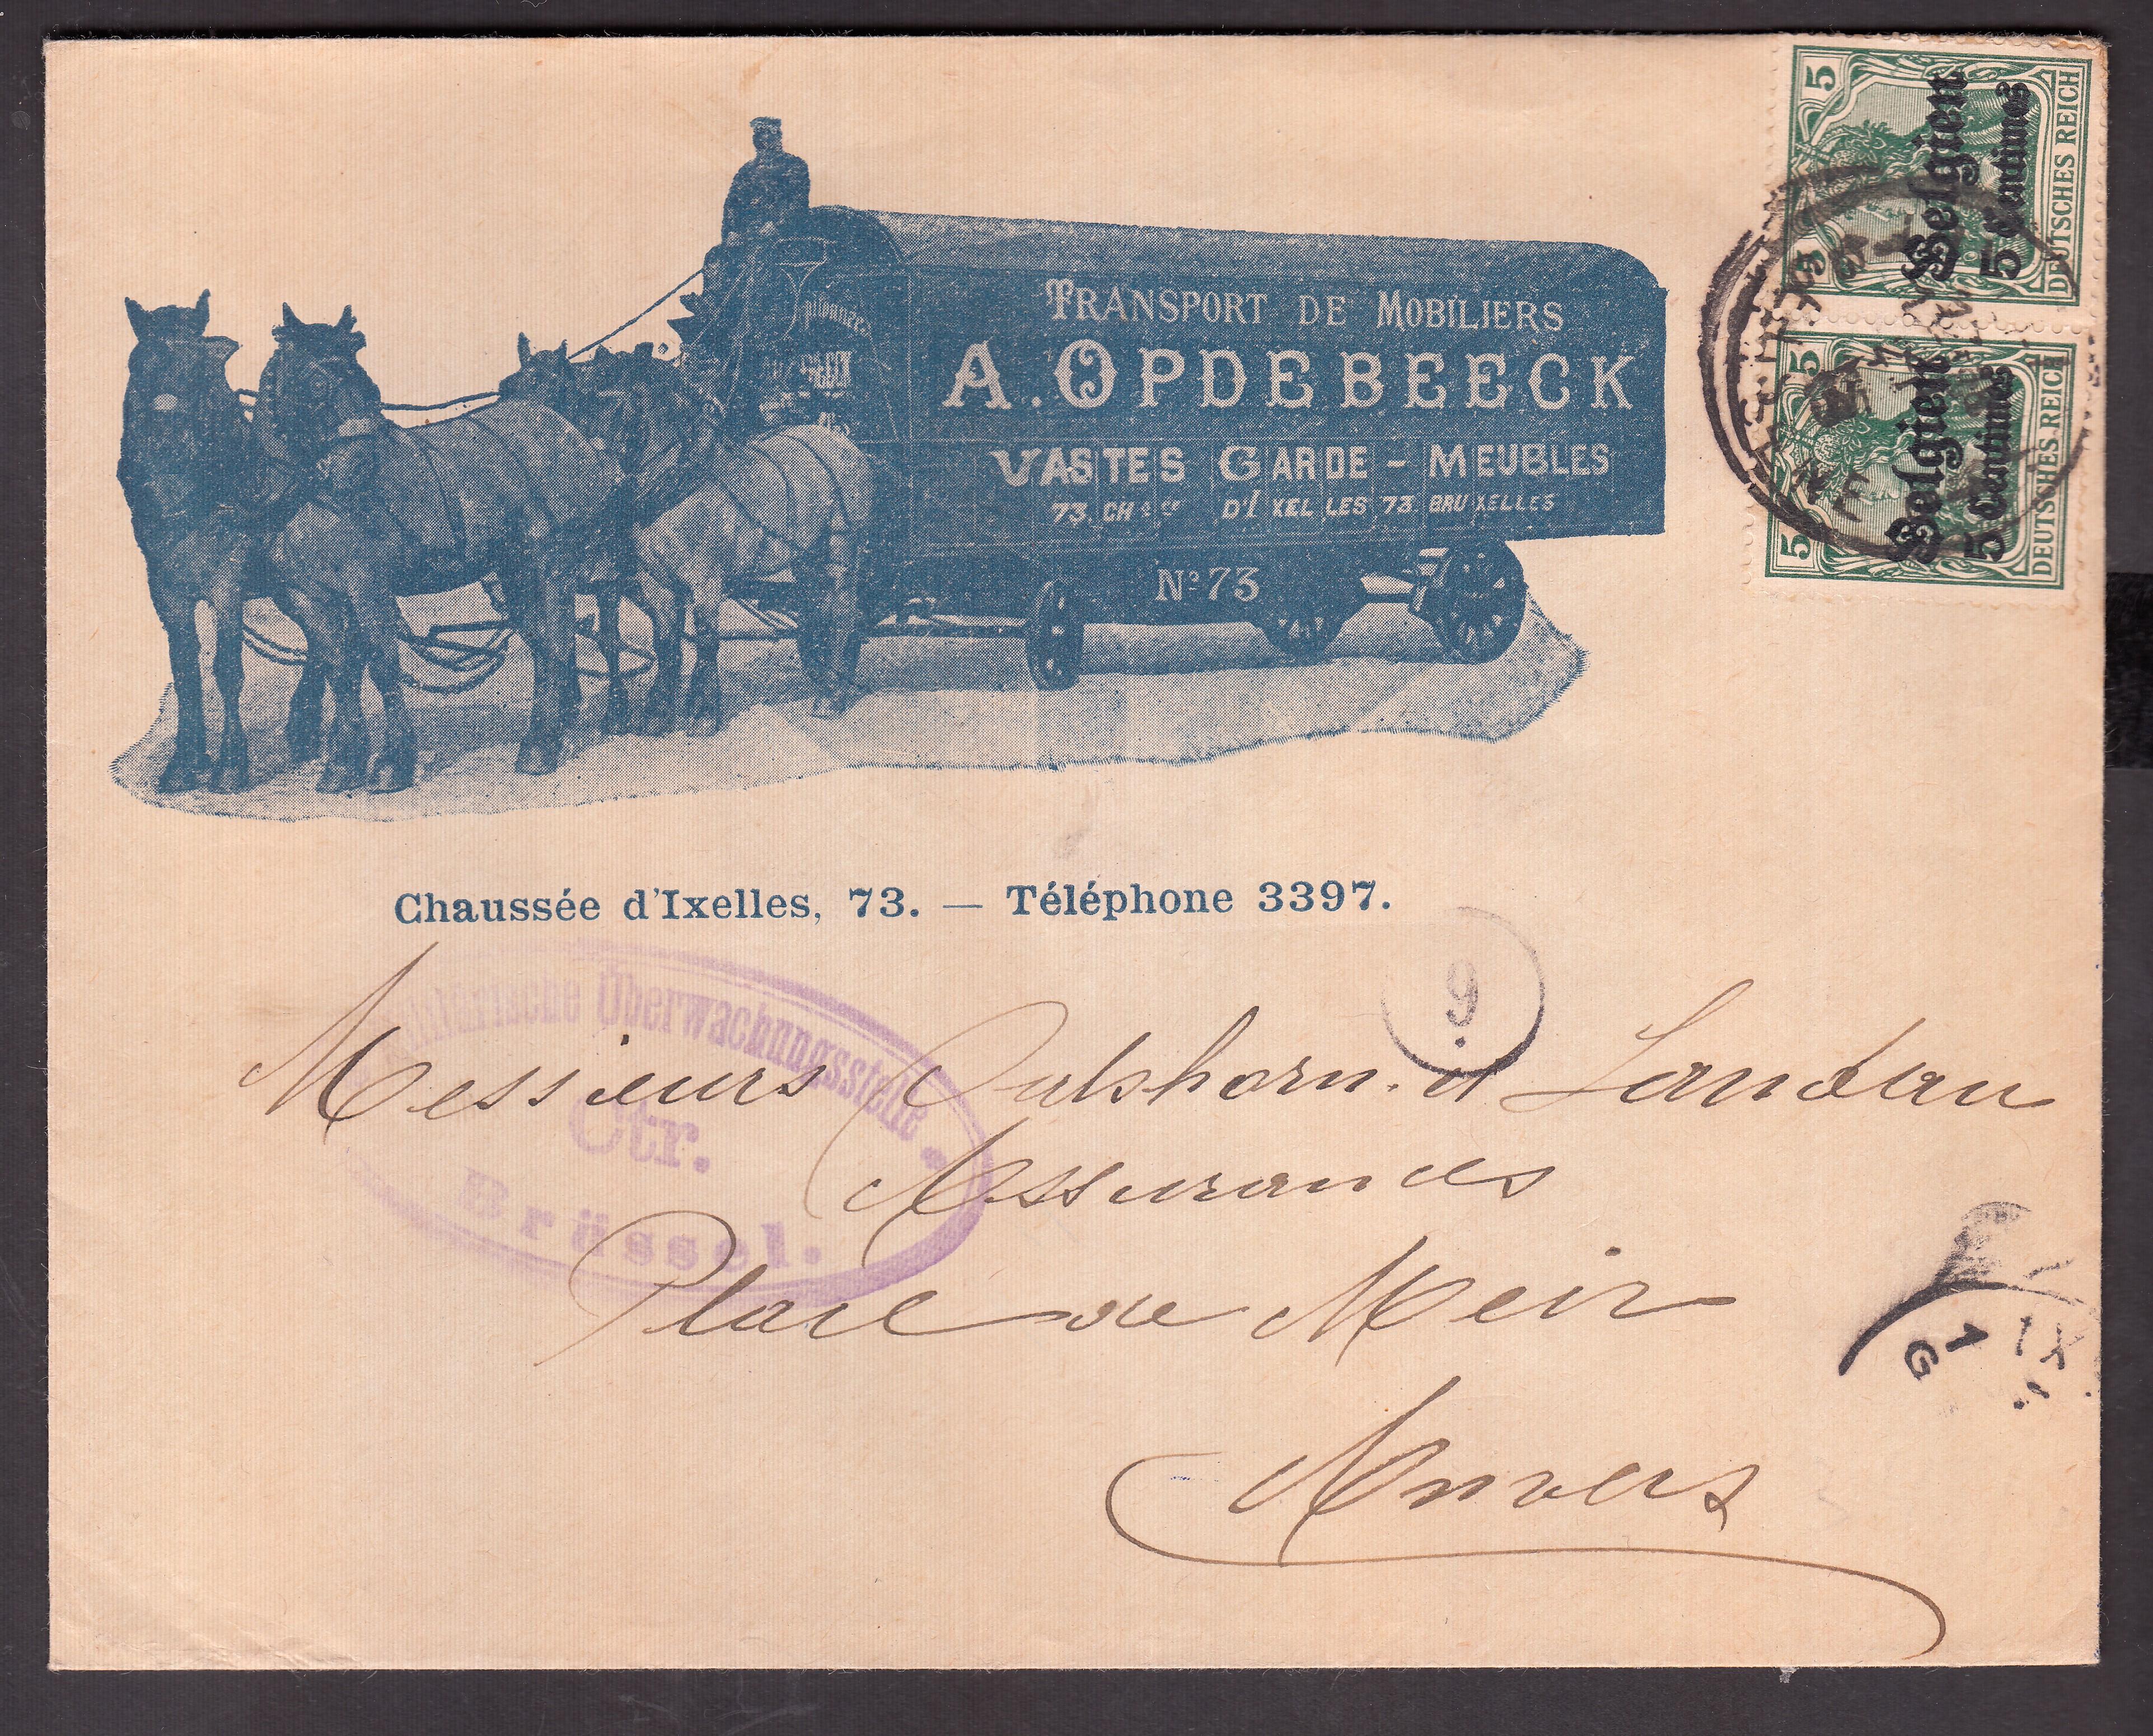 TRANSPORT DE MOBILIERS
A. OPDEBEECK
VASTES GARDE-MEUBLES
73. CHéE D'IXELLES 73. BRUXELLES
No 73
5
DEUTSCHES REICH
Belgien
5 Centimes
5 5
DEUTSCHES REICH
Belgien
5 Centimes
Chaussée d'Ixelles, 73. — Téléphone 3397.
9
Militärische Überwachungsstelle
Ctr.
Brüssel.
Messieurs Oulshorn et Landau
Assurances
Place de Meir
Anvers
1
G